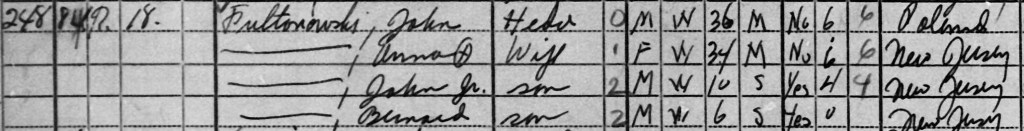 248 849 R. 18. Fultonowski, John Head 0 M W 36 M No 6 6 Poland
———, Anna ⓧ Wife 1 F W 34 M No 6 6 New Jersey
———, John Jr. son 2 M W 10 S Yes 4 4 New Jersey
———, Bernard son 2 M W 6 S Yes 0 New Jersey